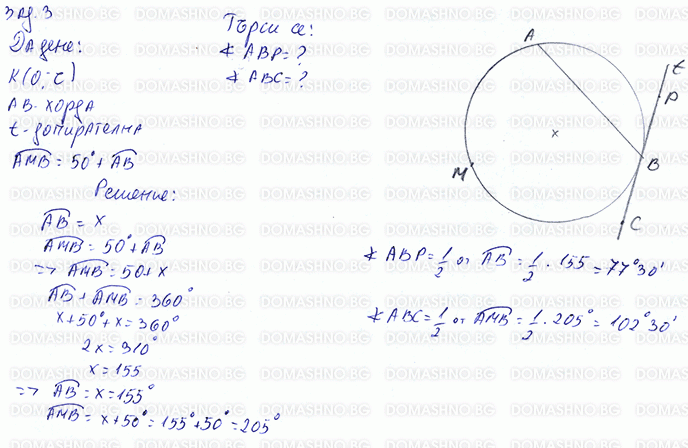 Зад. 3
Дадене:
K(O; r)
AB - хорда
t - допирателна
AMB = 50° + AB
Търси се:
∢ ABP = ?
∢ ABC = ?
Решение:
AB = x
AMB = 50° + AB
=> AMB = 50 + x
AB + AMB = 360°
x + 50° + x = 360°
2x = 310°
x = 155
=> AB = x = 155°
AMB = x + 50° = 155° + 50° = 205°
A
t
P
B
M
C
x
∢ ABP = 1/2 от AB = 1/2 . 155 = 77°30'
∢ ABC = 1/2 от AMB = 1/2 . 205° = 102°30'
DOMASHNO.BG